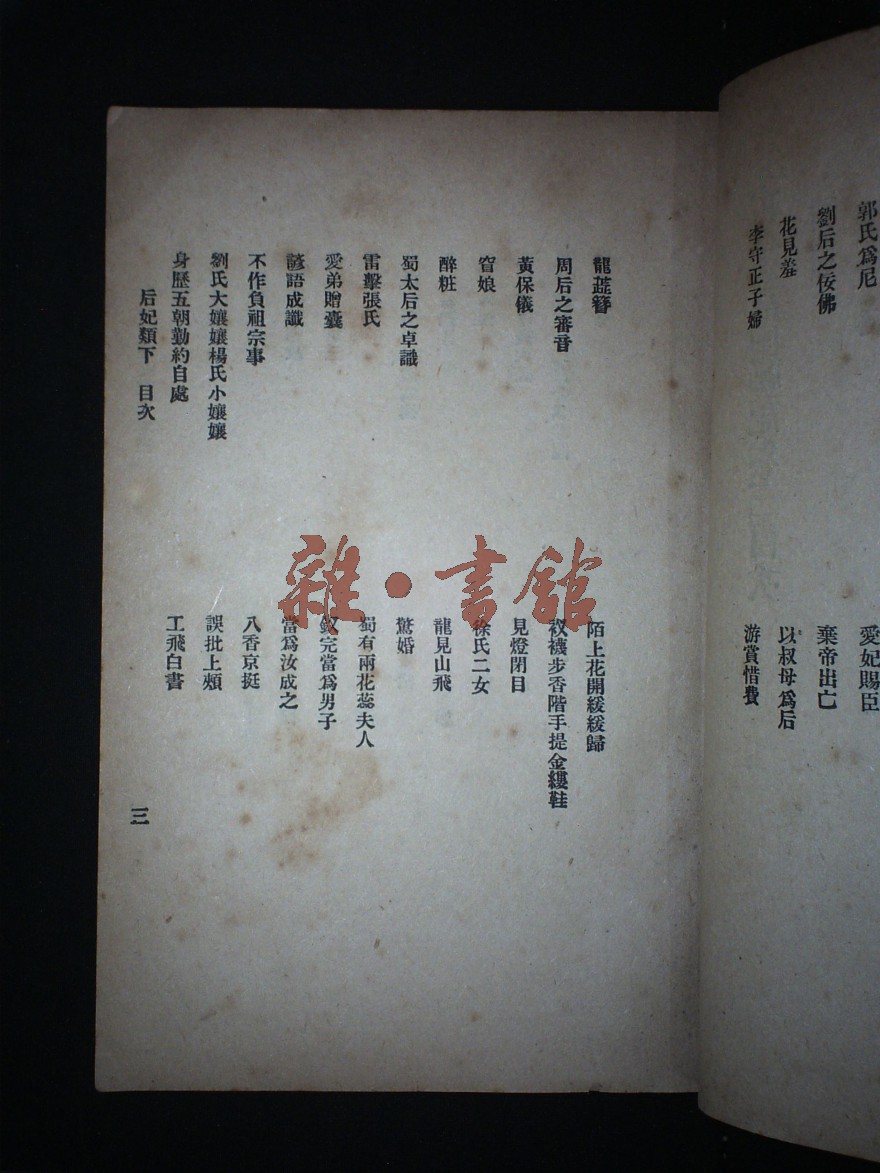 郭氏爲尼
愛妃賜臣
劉后之佞佛
棄帝出亡
花見羞
以叔母爲后
李守正子婦
游賞惜費
龍蕋簪
陌上花開緩緩歸
周后之審音
衩襪步香階手提金縷鞋
黃保儀
見燈閉目
窅娘
徐氏二女
醉粧
龍見山飛
蜀太后之卓識
驚婚
雷擊張氏
蜀有兩花蕊夫人
愛弟贈囊
釵完當爲男子
諺語成讖
當爲汝成之
不作負祖宗事
八香京挺
劉氏大孃孃楊氏小孃孃
誤批上頰
身歷五朝勤約自處
工飛白書
后妃類下 目次
三
雜·書館